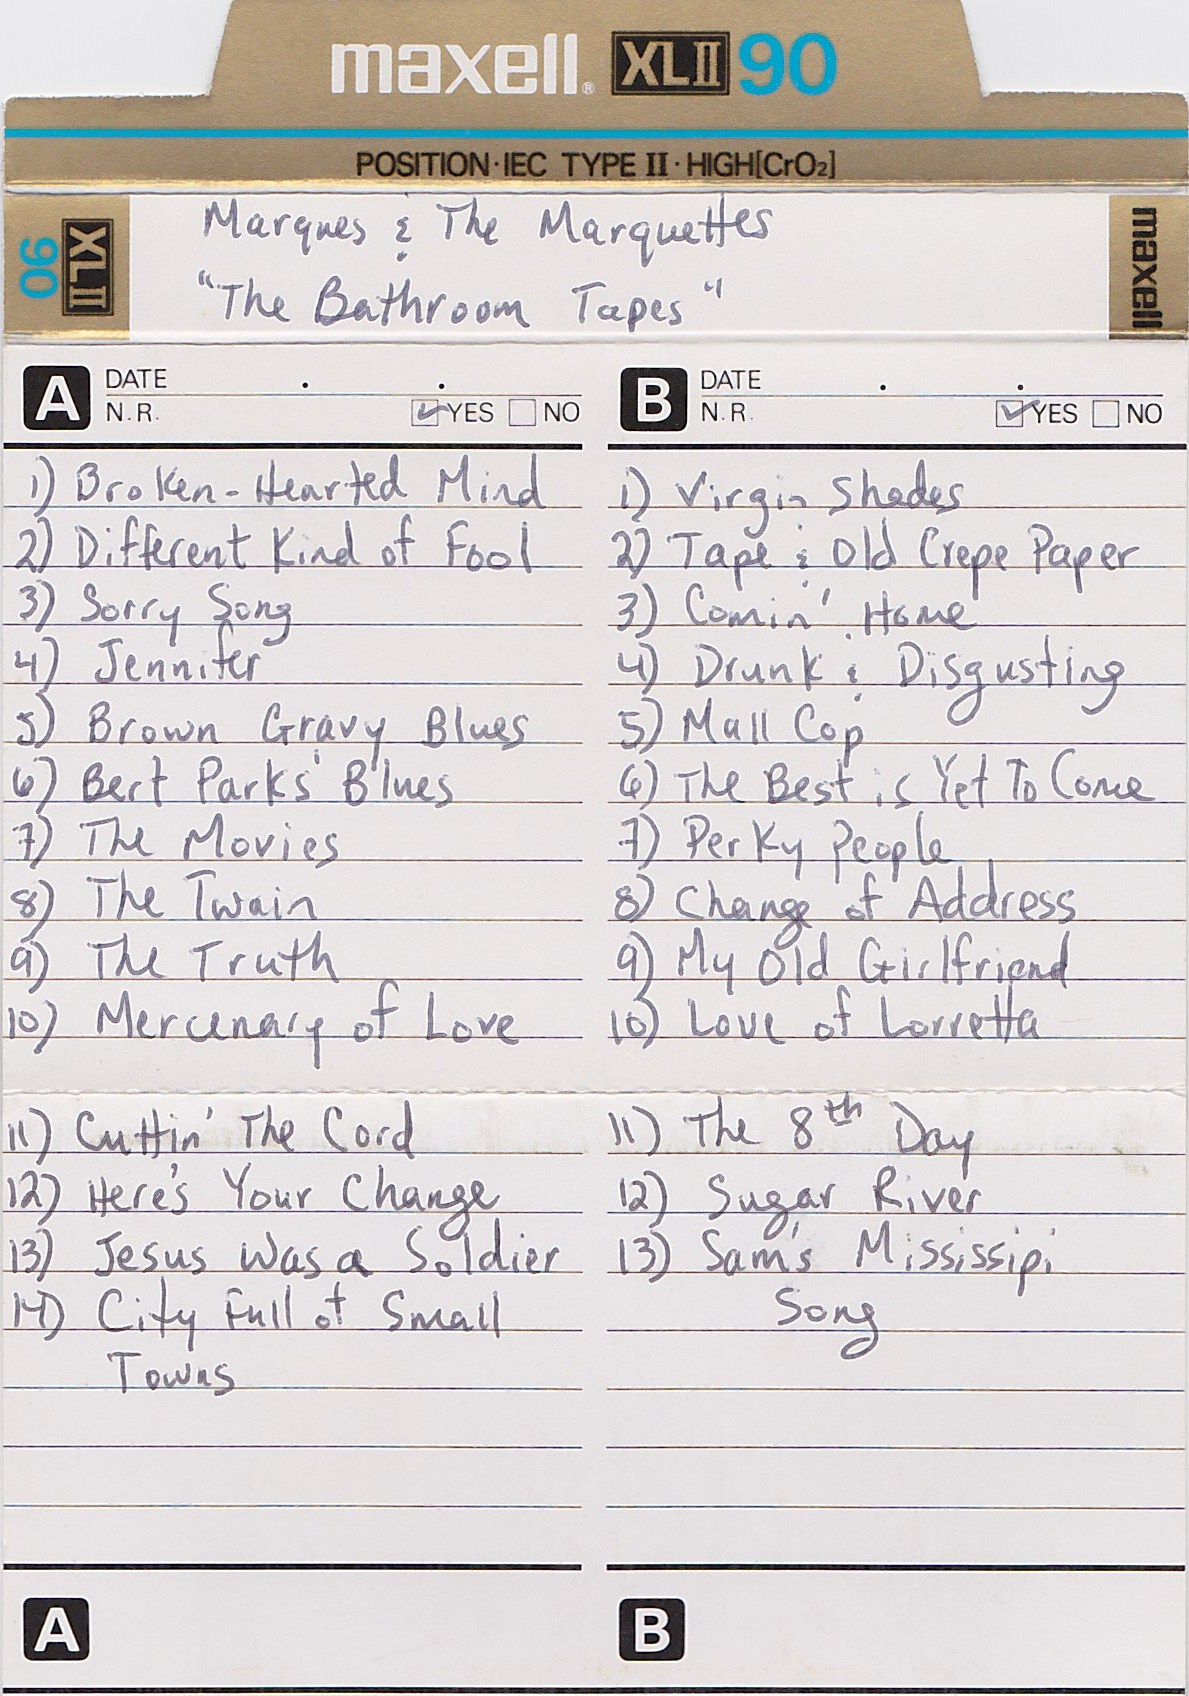 maxell® XLII 90
POSITION·IEC TYPE II·HIGH[CrO2]
XLII 90
Marques & The Marquettes
"The Bathroom Tapes"
maxell
A DATE . .
N.R. YES NO
1) Broken-Hearted Mind
2) Different Kind of Fool
3) Sorry Song
4) Jennifer
5) Brown Gravy Blues
6) Bert Parks' Blues
7) The Movies
8) The Twain
9) The Truth
10) Mercenary of Love
11) Cuttin' The Cord
12) Here's Your Change
13) Jesus Was a Soldier
14) City Full of Small
Towns
A
B DATE . .
N.R. YES NO
1) Virgin Shades
2) Tape & Old Crepe Paper
3) Comin' Home
4) Drunk & Disgusting
5) Mall Cop
6) The Best is Yet To Come
7) Perky People
8) Change of Address
9) My Old Girlfriend
10) Love of Lorretta
11) The 8th Day
12) Sugar River
13) Sam's Mississipi
Song
B